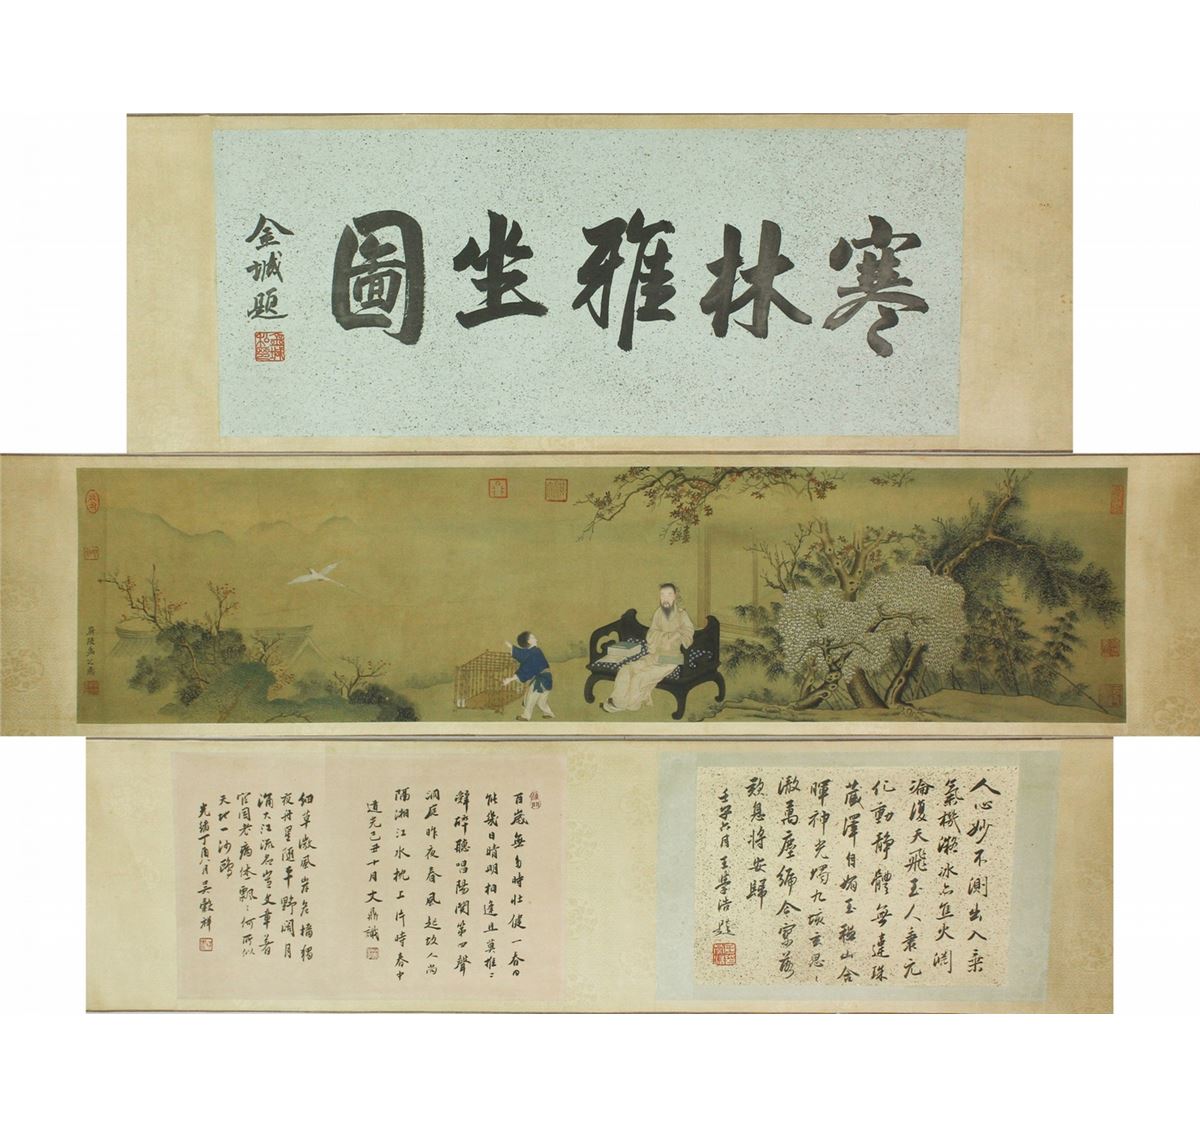 寒林雅坐圖
金城題
人心妙不測出入乘
氣機凝冰亦焦火淵
淪復天飛至人秉元
化動靜體無違珠
藏澤自媚玉韞山含
暉神光燭九垓玄思
澈萬塵編今寥落
歎息將安歸
壬子六月王學浩題
百歲無多時壯健一春
能幾日晴明相逢且莫推
辭醉聽唱陽關第四聲
洞庭昨夜春風起故人尚
隔湘江水枕上片時春中
道光己丑十月文鼎識
細草微風岸危檣獨
夜舟星隨平野闊月
湧大江流名豈文章著
官因老病休飄飄何所似
天地一沙鷗
光緒丁酉八月吳穀祥